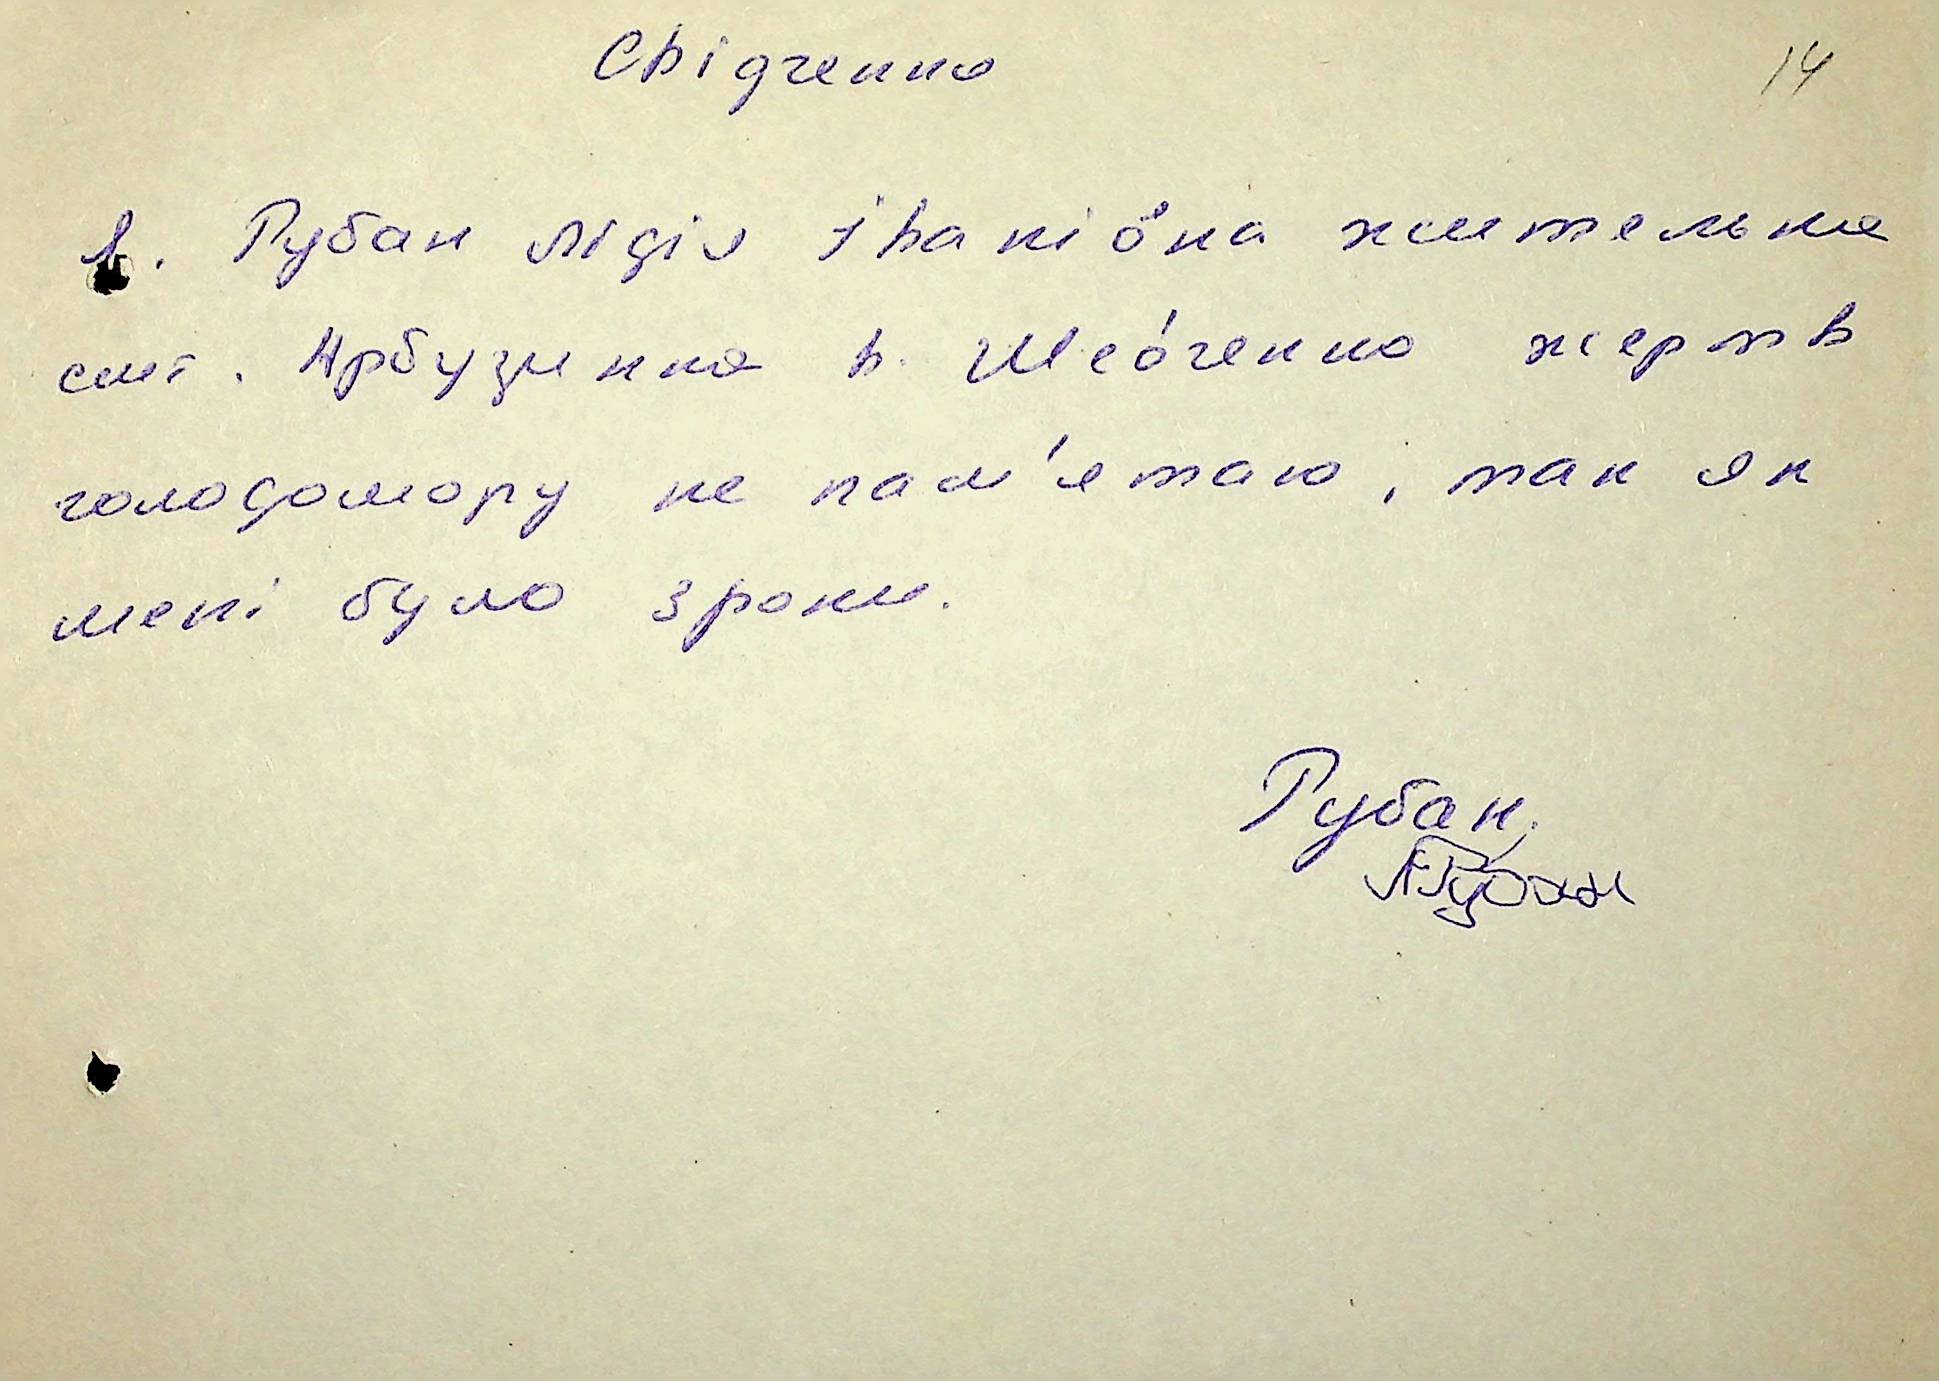 Свідчення
14
Я. Рубан Лідія Іванівна жителька
смт. Арбузинка в. Шевченко жертв
голодомору не пам'ятаю, так як
мені було 3 роки.
Рубан.
ЛРубан